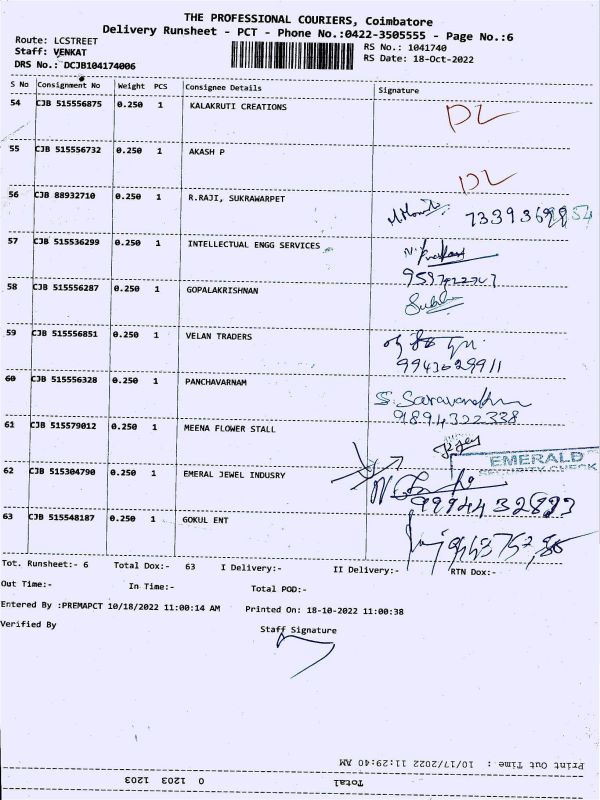 THE PROFESSIONAL COURIERS, Coimbatore
Delivery Runsheet - PCT - Phone No.:0422-3505555 - Page No.:6
Route: LCSTREET
Staff: VENKAT
DRS No.: DCJB104174006
RS No.: 1041740
RS Date: 18-Oct-2022
S No Consignment No Weight PCS Consignee Details Signature
54 CJB 515556875 0.250 1 KALAKRUTI CREATIONS DL
55 CJB 515556732 0.250 1 AKASH P DL
56 CJB 88932710 0.250 1 R.RAJI, SUKRAWARPET
57 CJB 515536299 0.250 1 INTELLECTUAL ENGG SERVICES
58 CJB 515556287 0.250 1 GOPALAKRISHNAN
59 CJB 515556851 0.250 1 VELAN TRADERS
9943629911
60 CJB 515556328 0.250 1 PANCHAVARNAM
9894322338
61 CJB 515579012 0.250 1 MEENA FLOWER STALL
EMERALD
SECURITY CHECK
62 CJB 515304790 0.250 1 EMERAL JEWEL INDUSRY
63 CJB 515548187 0.250 1 GOKUL ENT
Tot. Runsheet:- 6 Total Dox:- 63 I Delivery:- II Delivery:- RTN Dox:-
Out Time:- In Time:- Total POD:-
Entered By :PREMAPCT 10/18/2022 11:00:14 AM Printed On: 18-10-2022 11:00:38
Verified By Staff Signature
Print Out Time : 10/17/2022 11:29:40 AM
Total 0 1203 1203